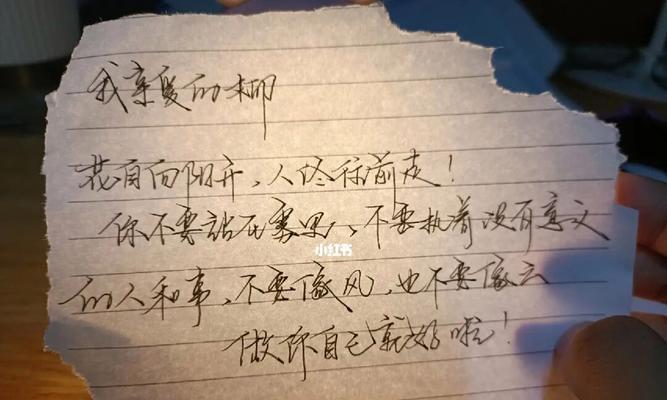 我亲爱的柳
花自向阳开，人终往前走！
你不要站在雾里，不要执着没有意义
的人和事，不要像风，也不要像云
做你自己就好啦！
小红书